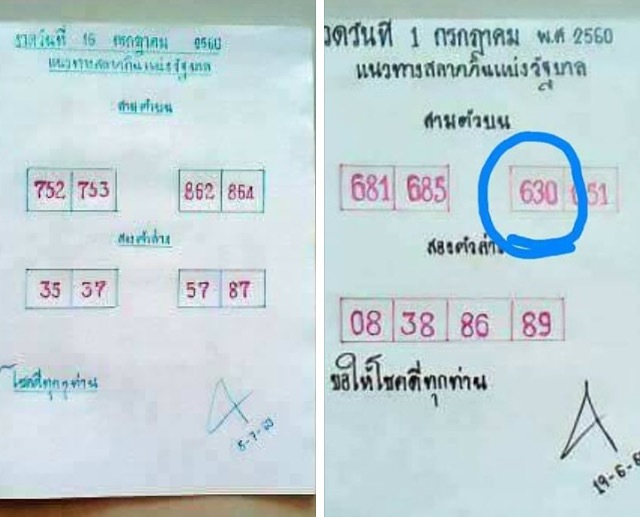 งวดวันที่ 16 กรกฎาคม 2560
แนวทางสลากกินแบ่งรัฐบาล
สามตัวบน
752 753 862 864
สองตัวล่าง
35 37 57 87
โชคดีทุกๆท่าน
งวดวันที่ 1 กรกฎาคม พ.ศ 2560
แนวทางสลากกินแบ่งรัฐบาล
สามตัวบน
681 685 630 651
สองตัวล่าง
08 38 86 89
ขอให้โชคดีทุกท่าน